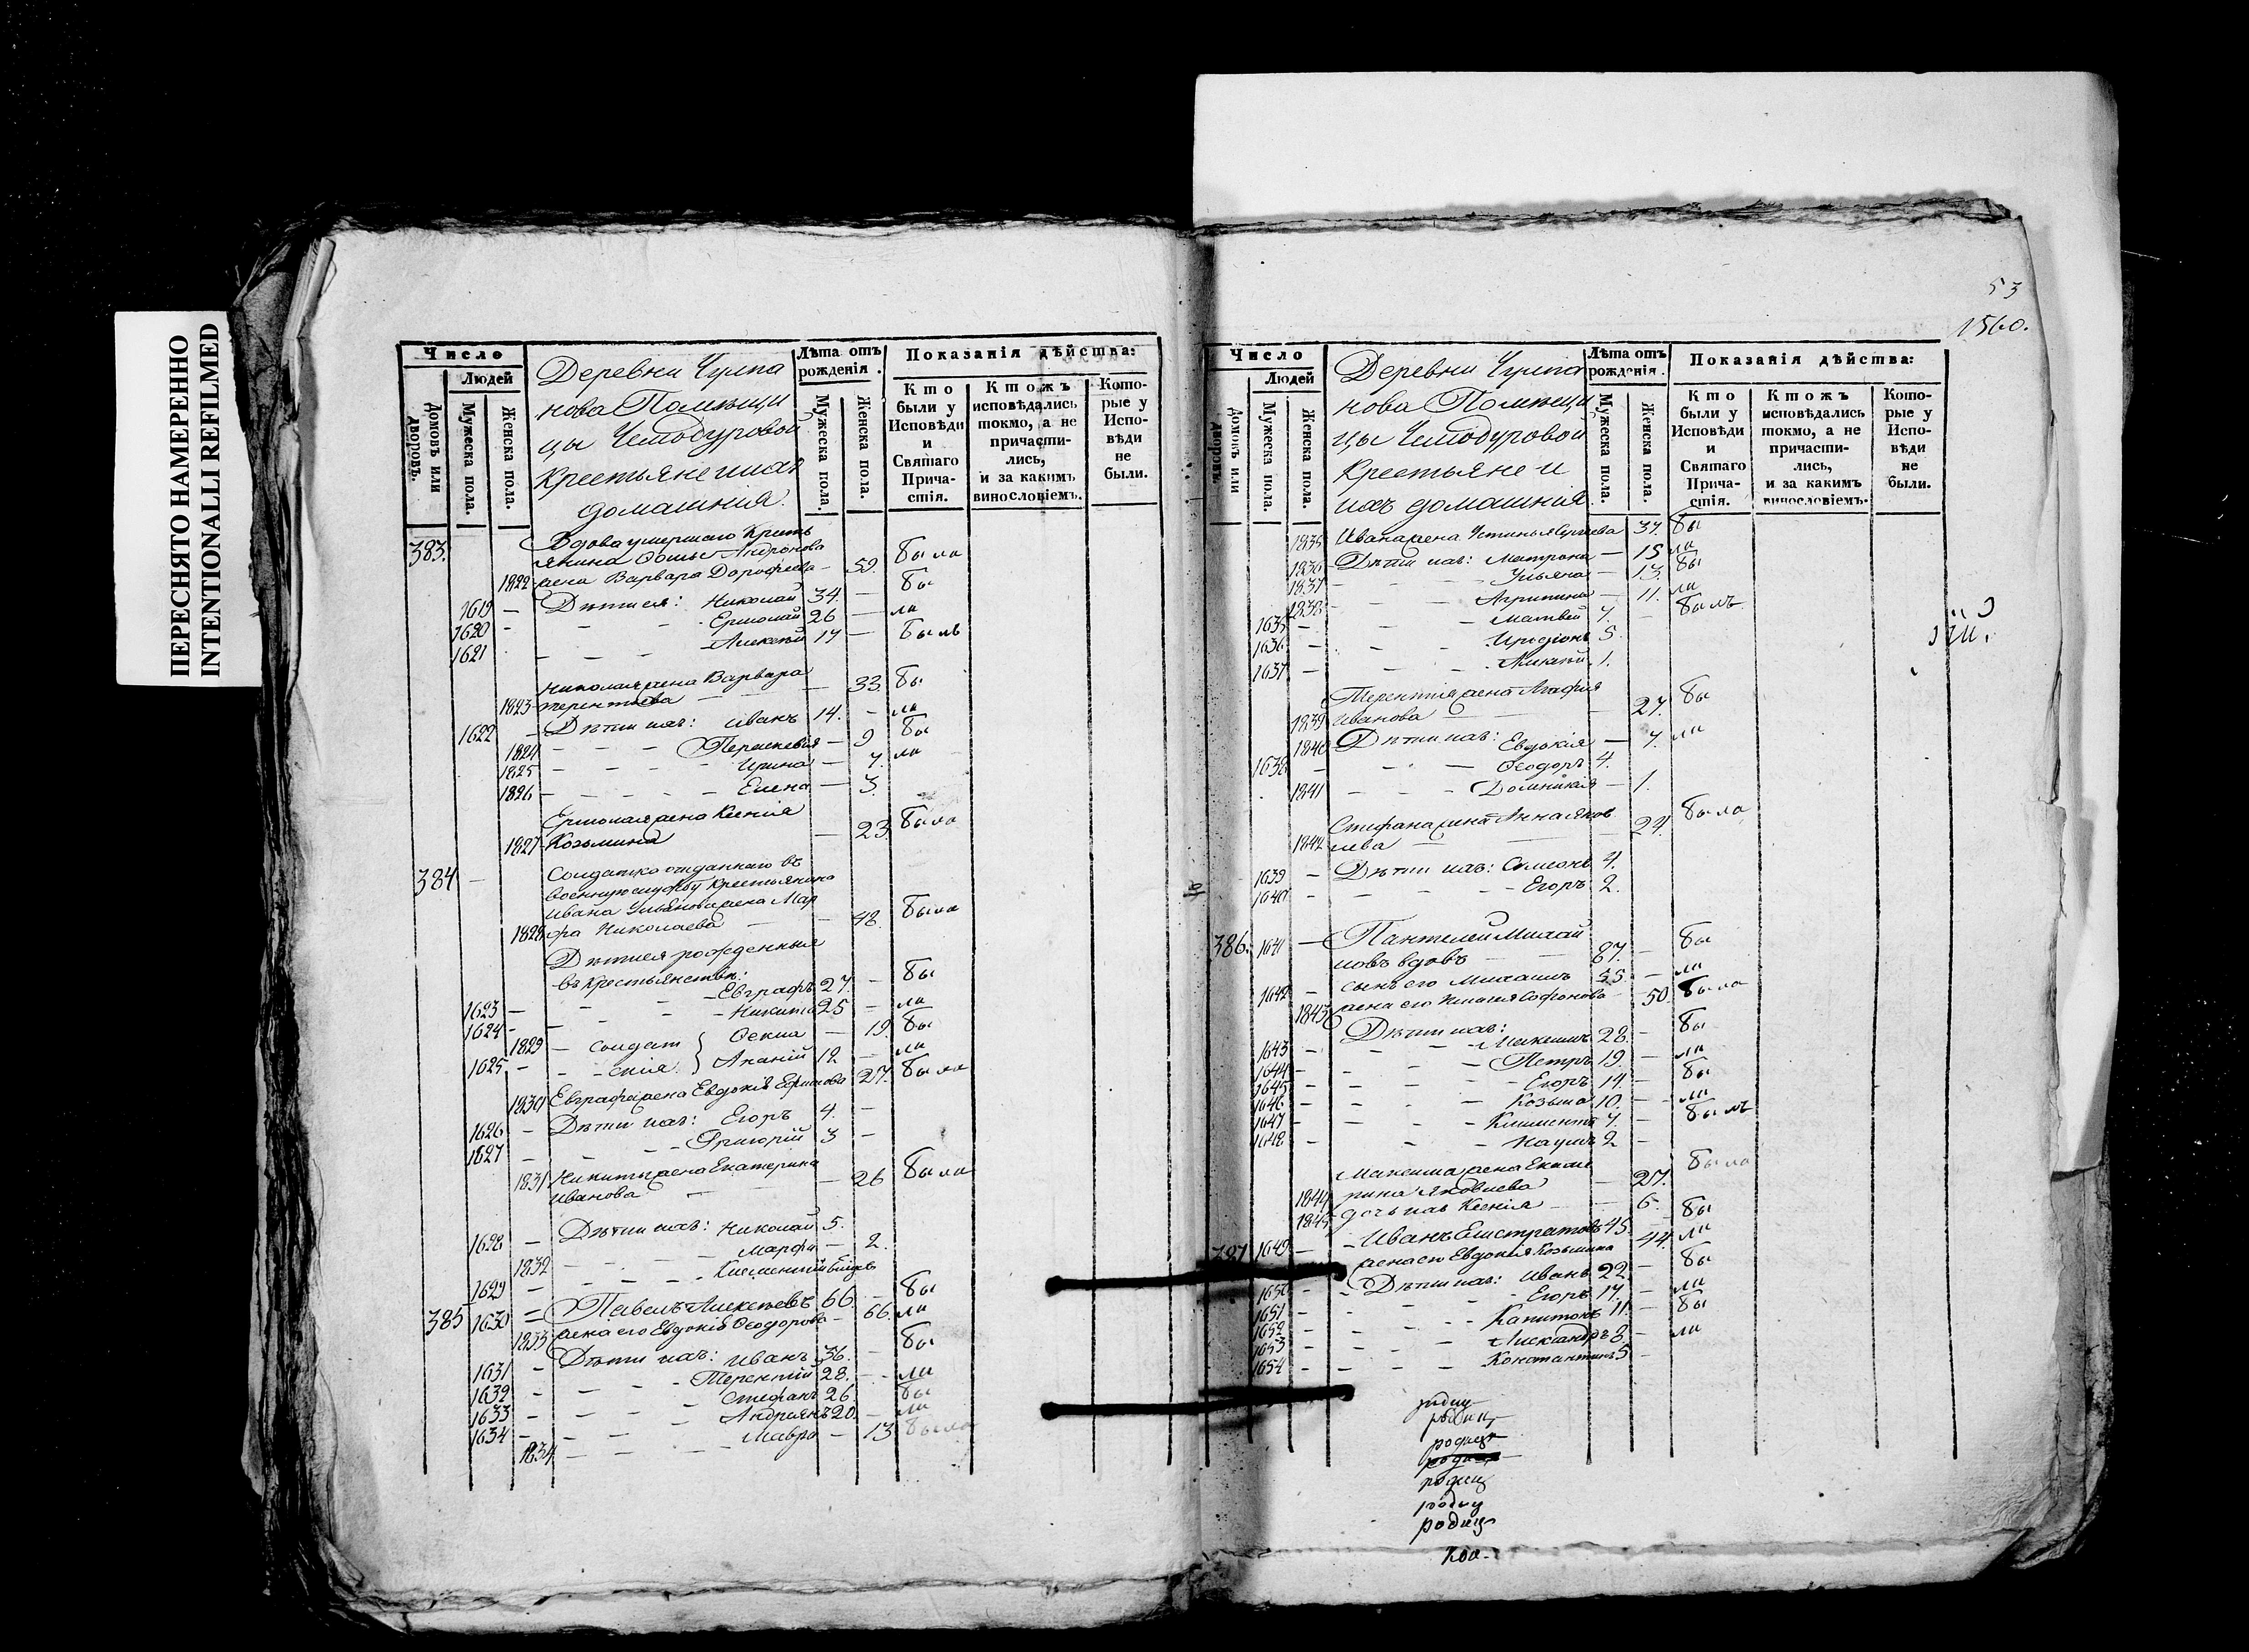 ПЕРЕСНЯТО НАМЕРЕННО
INTENTIONALLI REFILMED
Число
Людей
Домовъ или дворовъ.
Мужеска пола.
Женска пола.
Деревни Чулпа
нова Помѣщи
цы Чемодуровой
Крестьяне и ихъ
домашнія.
Лѣта отъ рожденія.
Мужеска пола.
Женска пола.
Показанія дѣйства:
Кто были у Исповѣди и Святаго Прича-стія.
Ктожъ исповѣдались токмо, а не причасти-лись, и за какимъ винословіемъ.
Кото-рые у Испо-вѣди не были.
383. Вдова умершаго Кресть
янина Андронова
1822 жена Варвара Дорофеева — 59. была
1619 — Дѣти ея: Николай 34. — бы
1620 — Ермолай 26 — ли
1621 — Алексѣй 17 — былъ
Николая жена Варвара
1823 терентьева — 33. бы
1622 — Дѣти ихъ: Иванъ 14. — ли
1824 — Параскевія — 9 бы
1825 — Ирина — 7. ли
1826 — Елена — 3.
Ермолая жена Ксенія
1827 Козьмина — 23 была
384 — Солдатка отданнаго въ
военную службу крестьянина
Ивана Ульянова жена Мар
1828 фа Николаева — 48. была
Дѣти ея рожденныя
въ крестьянствѣ:
1623 — Евграфъ 27. — бы
1624 — Никита 25 — ли
1829 — солдат } Ѳекла — 19. бы
1625 — скія } Ананій 12 — ли
1830 Евграфа жена Евдокія Ефимова 27. была
1626 — Дѣти ихъ: Егоръ 4. —
1627 — Григорій 3 —
1831 Никиты жена Екатерина
Иванова — 26 была
1628 — Дѣти ихъ: Николай 5.
1832 — Марфа — 2.
1629 — Климентій
385 1630 — Павелъ Алексѣевъ 66. — бы
1833 жена его Евдокія Ѳеодорова — 66. ли
1631 — Дѣти ихъ: Иванъ 36. — бы
1632 — Терентій 28. — ли
1633 — Стефанъ 26. бы
1634 — Андриянъ 20. — ли
1834 — Мавра — 13 была
53
1560.
Число
Людей
Домовъ или дворовъ.
Мужеска пола.
Женска пола.
Деревни Чулпа
нова Помѣщи
цы Чемодуровой
Крестьяне и
ихъ домашнія
Лѣта отъ рожденія.
Мужеска пола.
Женска пола.
Показанія дѣйства:
Кто были у Исповѣди и Святаго Прича-стія.
Ктожъ исповѣдались токмо, а не причасти-лись, и за какимъ винословіемъ.
Кото-рые у Испо-вѣди не были.
1835 Ивана жена Устинья Сергѣева 37. бы
1836 — Дѣти ихъ: Матрона — 15 ли
1837 — Ульяна — 13. бы
1838 — Агрипина — 11. ли
1635 — Матвей 7. — былъ
1636 — Иродіонъ 5.
1637 — Алексѣй 1.
Терентія жена Агафия
1839 Иванова — 27. бы
1840 Дѣти ихъ: Евдокія — 7. ли
1638 — Ѳеодоръ 4.
1841 — Домникія — 1.
Стефана жена Анна Яков
1842 лева — 24. была
1639 — Дѣти ихъ: Симеонъ 4.
1640 — Егоръ 2.
386. 1641 — Пантелей Михай
ловъ вдовъ 87. — бы
1642 — сынъ его Михаилъ 55. — ли
1843 жена его Софронова — 50. была
Дѣти ихъ:
1643 — Максимъ 28. — бы
1644 — Петръ 19. — ли
1645 — Егоръ 14. — бы
1646 — Козьма 10. — ли
1647 — Климентъ 7. — былъ
1648 — Наумъ 2 —
Максима жена Екате
1844 рина Яковлева — 27. была
1845 дочь ихъ Ксенія — 6. бы
387 1649 — Иванъ Елистратовъ 45. ли
жена его Евдокія Козьмина 44. бы
1650 — Дѣти ихъ: Иванъ 22. —
1651 — Егоръ 17. — ли
1652 — Капитонъ 11. — бы
1653 — Александръ 8. — ли
1654 — Константинъ 5 —
родиц
родиц
родиц
родиц
родиц
родиц